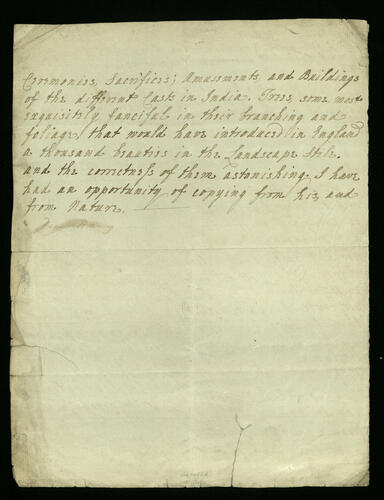 Ceremonies, Sacrifices; Amusements and Buildings
of the different Casts in India. Trees, some most
exquisitely fanciful in their branching and
foliage, that would have introduced in England
a thousand beauties in the Landscape Stile.
and the correctness of them astonishing. I have
had an opportunity of copying from his, and
from Nature.